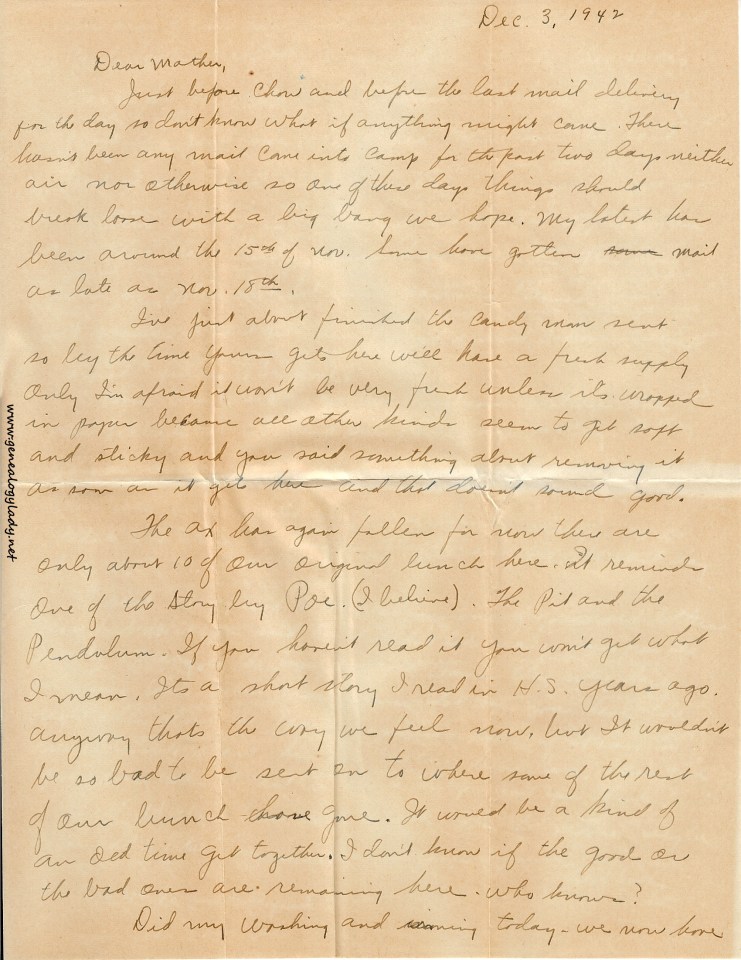 Dec. 3, 1942
Dear Mother,
Just before chow and before the last mail delivery
for the day so don't know what if anything might come. There
hasn't been any mail come into camp for the past two days neither
air nor otherwise so one of these days things should
break loose with a big bang we hope. My latest has
been around the 15th of Nov. Some have gotten some mail
as late as Nov. 18th.
I've just about finished the candy mom sent
so by the time yours gets here will have a fresh supply
only I'm afraid it won't be very fresh unless its wrapped
in paper because all other kinds seem to get soft
and sticky and you said something about removing it
as soon as it gets here and that doesn't sound good.
The ax has again fallen for now there are
only about 10 of our original bunch here. It reminds
one of the story by Poe. (I believe). The Pit and the
Pendulum. If you haven't read it you won't get what
I mean. Its a short story I read in H.S. years ago.
anyway thats the way we feel now, but It wouldn't
be so bad to be sent on to where some of the rest
of our bunch have gone. It would be a kind of
an old time get together. I don't know if the good or
the bad ones are remaining here. who knows?
Did my washing and ironing today - we now have
www.genealogylady.net